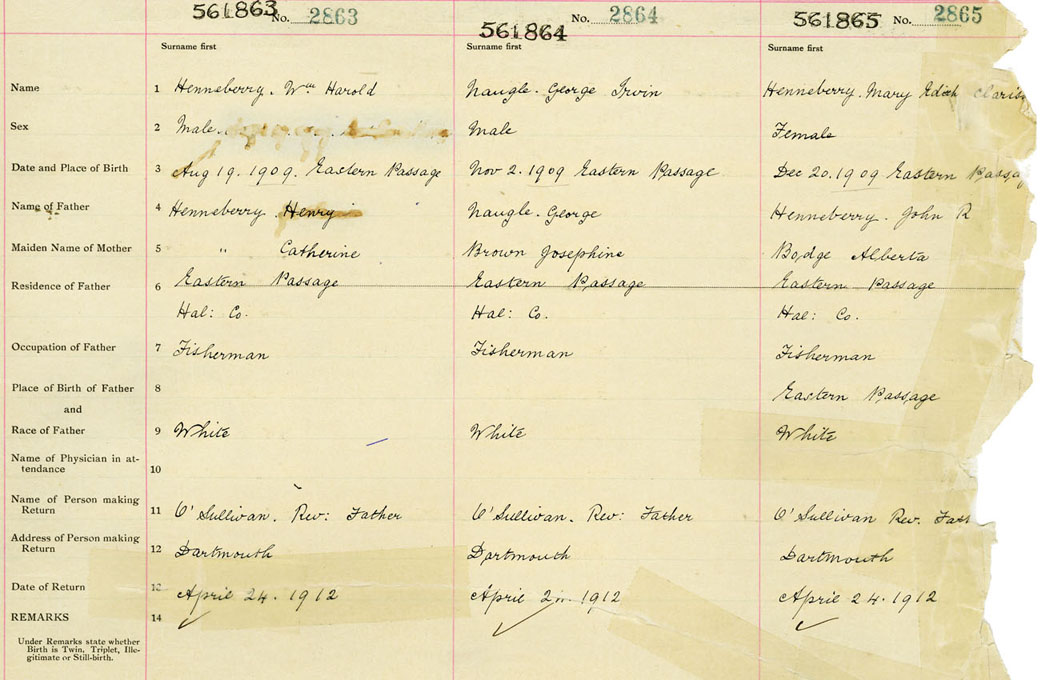 561863 No. 2863
561864 No. 2864
561865 No. 2865
Surname first Surname first Surname first
Name 1 Henneberry. Wm Harold Naugle. George Irvin Henneberry. Mary Edith
Sex 2 Male. Male Female
Date and Place of Birth 3 Aug 19. 1909. Eastern Passage Nov 2. 1909 Eastern Passage Dec 20. 1909 Eastern Passag
Name of Father 4 Henneberry Henry Naugle. George Henneberry. John R
Maiden Name of Mother 5 " Catherine Brown Josephine Bodge Alberta
Residence of Father 6 Eastern Passage Eastern Passage Eastern Passage
Hal: Co. Hal: Co. Hal: Co.
Occupation of Father 7 Fisherman Fisherman Fisherman
Place of Birth of Father 8 Eastern Passage
and
Race of Father 9 White White White
Name of Physician in at-
tendance 10
Name of Person making
Return 11 O'Sullivan. Rev: Father O'Sullivan. Rev: Father O'Sullivan Rev. Fath
Address of Person making
Return 12 Dartmouth Dartmouth Dartmouth
Date of Return 13 April 24. 1912 April 1912 April 24. 1912
REMARKS 14
Under Remarks state whether
Birth is Twin, Triplet, Ille-
gitimate or Still-birth.